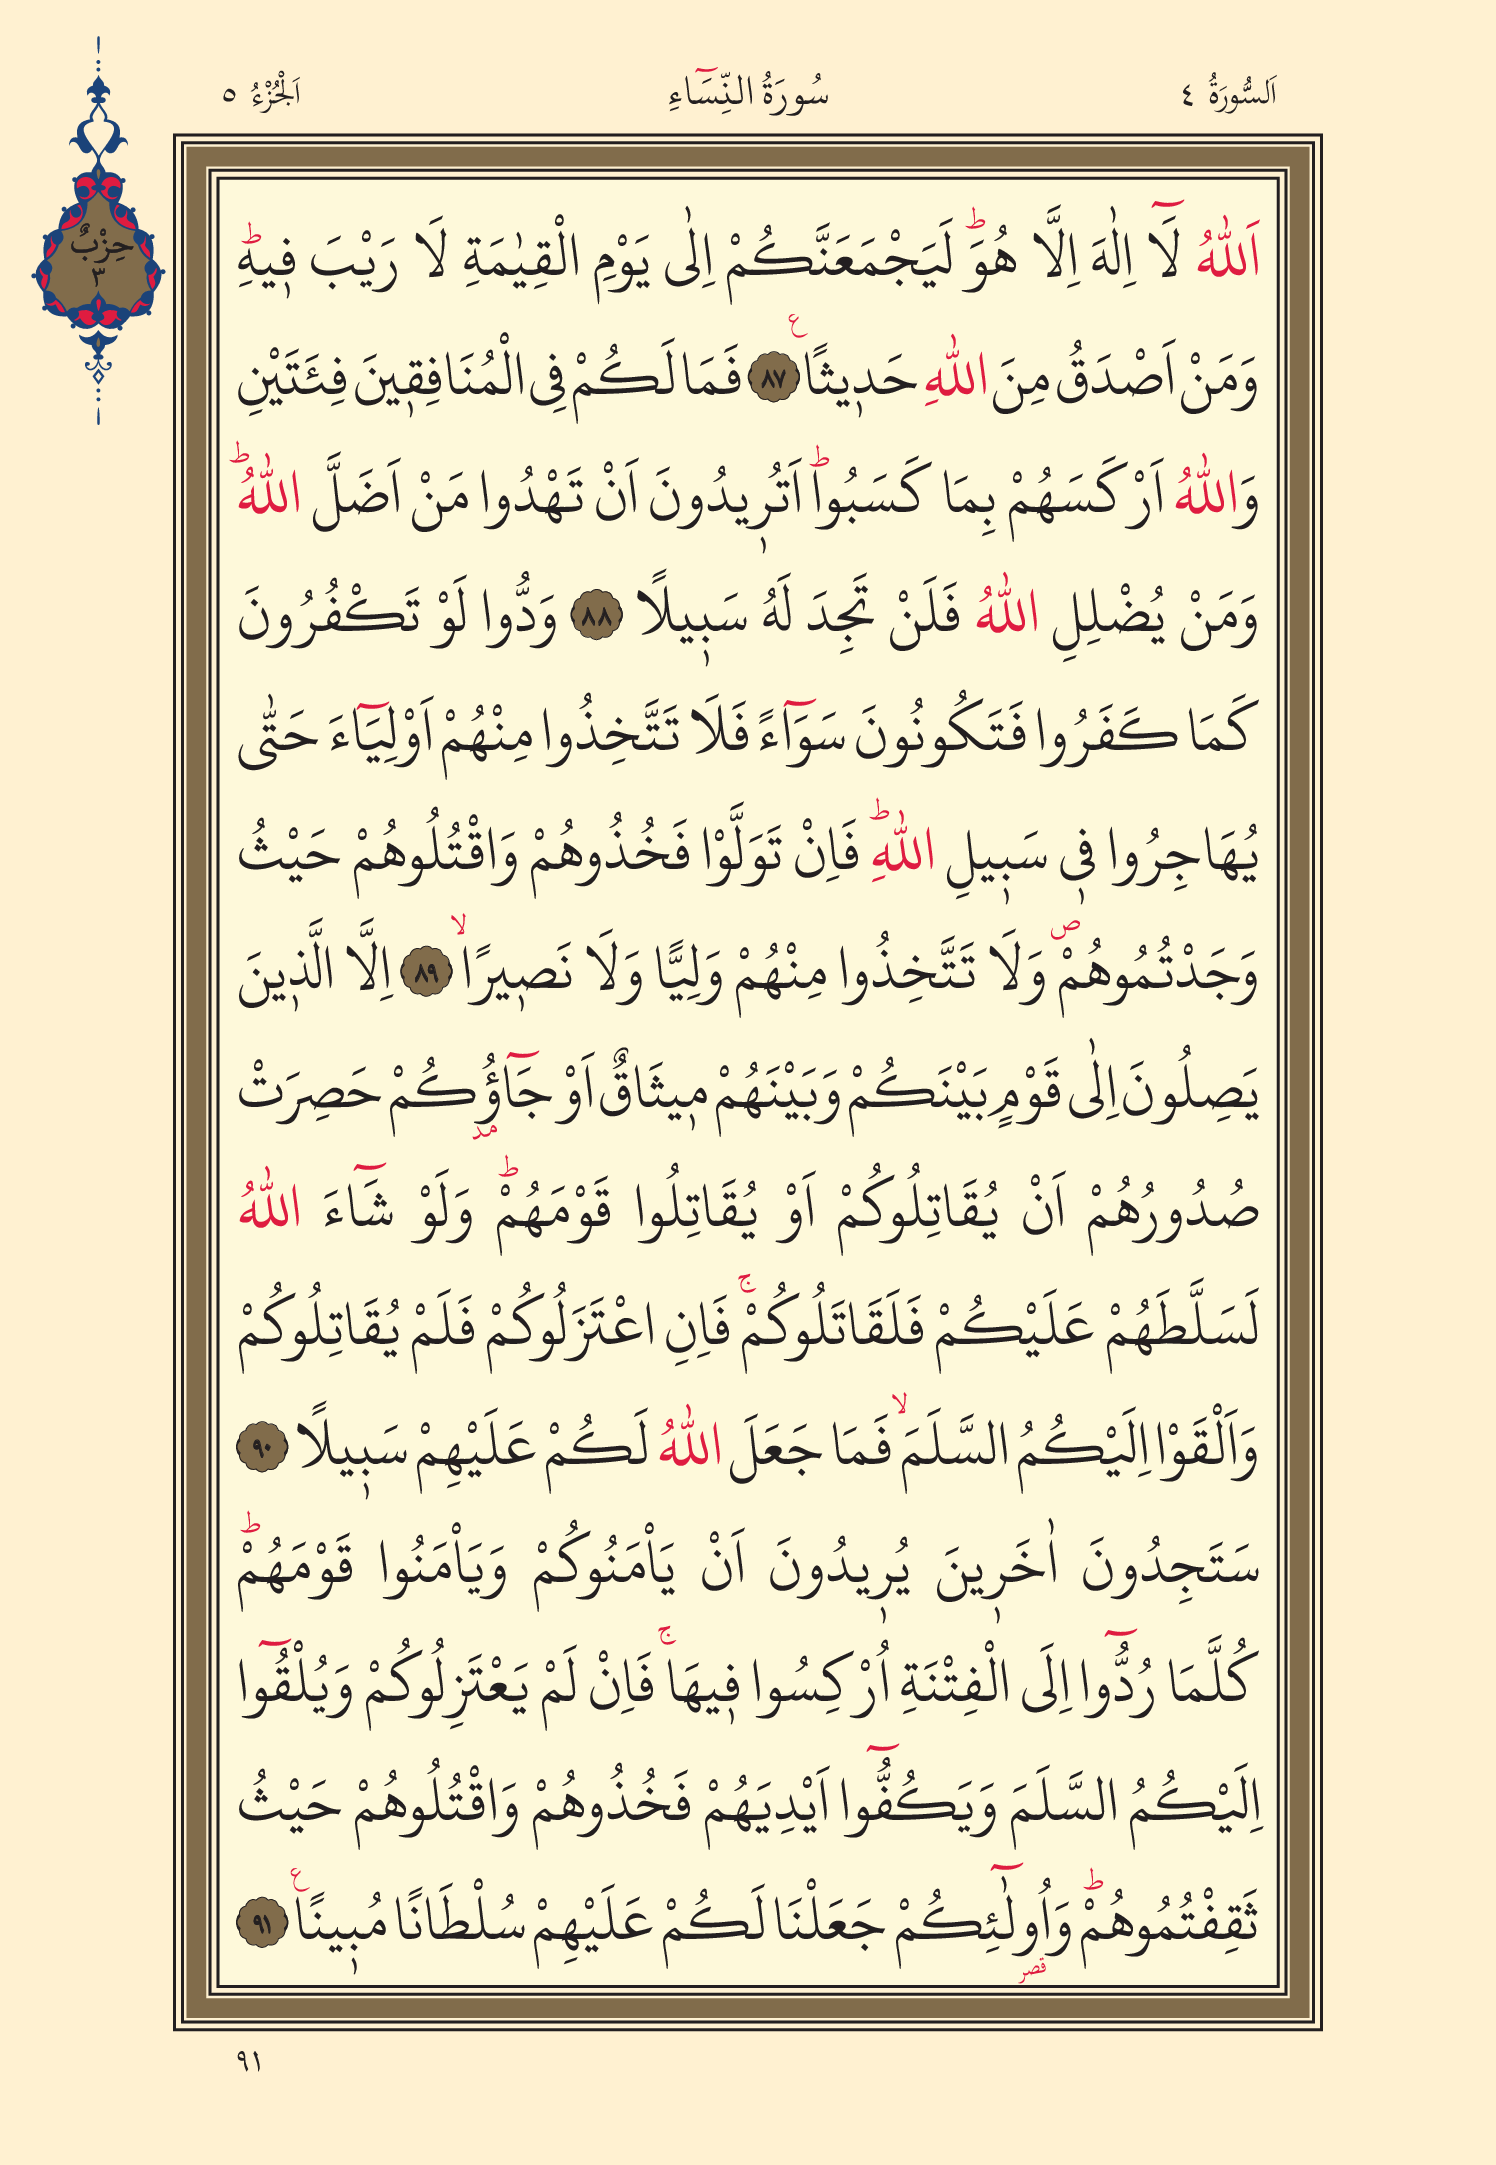 اَلسُّورَةُ ٤
سُورَةُ النِّسَٓاءِ
اَلْجُزْءُ ٥
حِزْبٌ
٣
اَللّٰهُ لَٓا اِلٰهَ اِلَّا هُوَۜ لَيَجْمَعَنَّكُمْ اِلٰى يَوْمِ الْقِيٰمَةِ لَا رَيْبَ ف۪يهِۜ
وَمَنْ اَصْدَقُ مِنَ اللّٰهِ حَد۪يثًاࣖ ﴿٨٧﴾ فَمَا لَكُمْ فِي الْمُنَافِق۪ينَ فِئَتَيْنِ
وَاللّٰهُ اَرْكَسَهُمْ بِمَا كَسَبُواۜ اَتُر۪يدُونَ اَنْ تَهْدُوا مَنْ اَضَلَّ اللّٰهُۜ
وَمَنْ يُضْلِلِ اللّٰهُ فَلَنْ تَجِدَ لَهُ سَب۪يلًا ﴿٨٨﴾ وَدُّوا لَوْ تَكْفُرُونَ
كَمَا كَفَرُوا فَتَكُونُونَ سَوَٓاءً فَلَا تَتَّخِذُوا مِنْهُمْ اَوْلِيَٓاءَ حَتّٰى
يُهَاجِرُوا ف۪ي سَب۪يلِ اللّٰهِۜ فَاِنْ تَوَلَّوْا فَخُذُوهُمْ وَاقْتُلُوهُمْ حَيْثُ
وَجَدْتُمُوهُمْۖ وَلَا تَتَّخِذُوا مِنْهُمْ وَلِيًّا وَلَا نَص۪يرًاۙ ﴿٨٩﴾ اِلَّا الَّذ۪ينَ
يَصِلُونَ اِلٰى قَوْمٍ بَيْنَكُمْ وَبَيْنَهُمْ م۪يثَاقٌ اَوْ جَٓاؤُ۫كُمْ حَصِرَتْ
مد
صُدُورُهُمْ اَنْ يُقَاتِلُوكُمْ اَوْ يُقَاتِلُوا قَوْمَهُمْۜ وَلَوْ شَٓاءَ اللّٰهُ
لَسَلَّطَهُمْ عَلَيْكُمْ فَلَقَاتَلُوكُمْۚ فَاِنِ اعْتَزَلُوكُمْ فَلَمْ يُقَاتِلُوكُمْ
وَاَلْقَوْا اِلَيْكُمُ السَّلَمَۙ فَمَا جَعَلَ اللّٰهُ لَكُمْ عَلَيْهِمْ سَب۪يلًا ﴿٩٠﴾
سَتَجِدُونَ اٰخَر۪ينَ يُر۪يدُونَ اَنْ يَاْمَنُوكُمْ وَيَاْمَنُوا قَوْمَهُمْۜ
كُلَّمَا رُدُّٓوا اِلَى الْفِتْنَةِ اُرْكِسُوا ف۪يهَاۚ فَاِنْ لَمْ يَعْتَزِلُوكُمْ وَيُلْقُٓوا
اِلَيْكُمُ السَّلَمَ وَيَكُفُّٓوا اَيْدِيَهُمْ فَخُذُوهُمْ وَاقْتُلُوهُمْ حَيْثُ
ثَقِفْتُمُوهُمْۜ وَاُو۬لٰٓئِكُمْ جَعَلْنَا لَكُمْ عَلَيْهِمْ سُلْطَانًا مُب۪ينًاࣖ ﴿٩١﴾
قصر
٩١